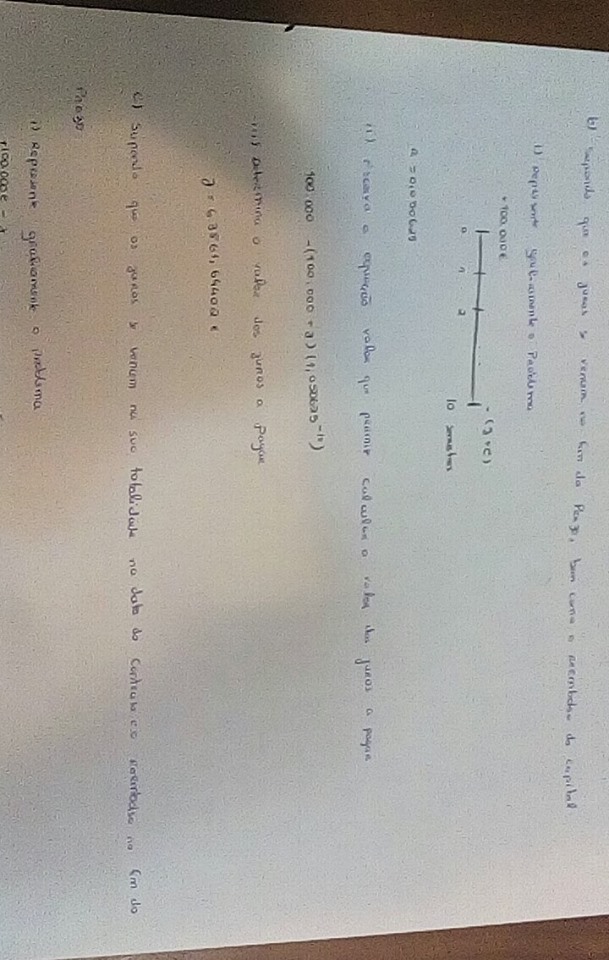 b) Supondo que os juros se vencem no fim do Prazo, bem como o reembolso do capital
i) Represente graficamente o Problema
+100.000€
- (J+C)
0 1 2 ... 10 semestres
i = 0,050625
ii) Escreva a equação valor que permite calcular o valor dos juros a pagar
100.000 - (100.000 + J) (1,050625^-10)
iii) Determina o valor dos juros a pagar
J = 63861,64402 €
c) Supondo que os juros se vencem na sua totalidade na data do contrato e o reembolso no fim do
Prazo
i) Represente graficamente o problema
+100.000€ - J